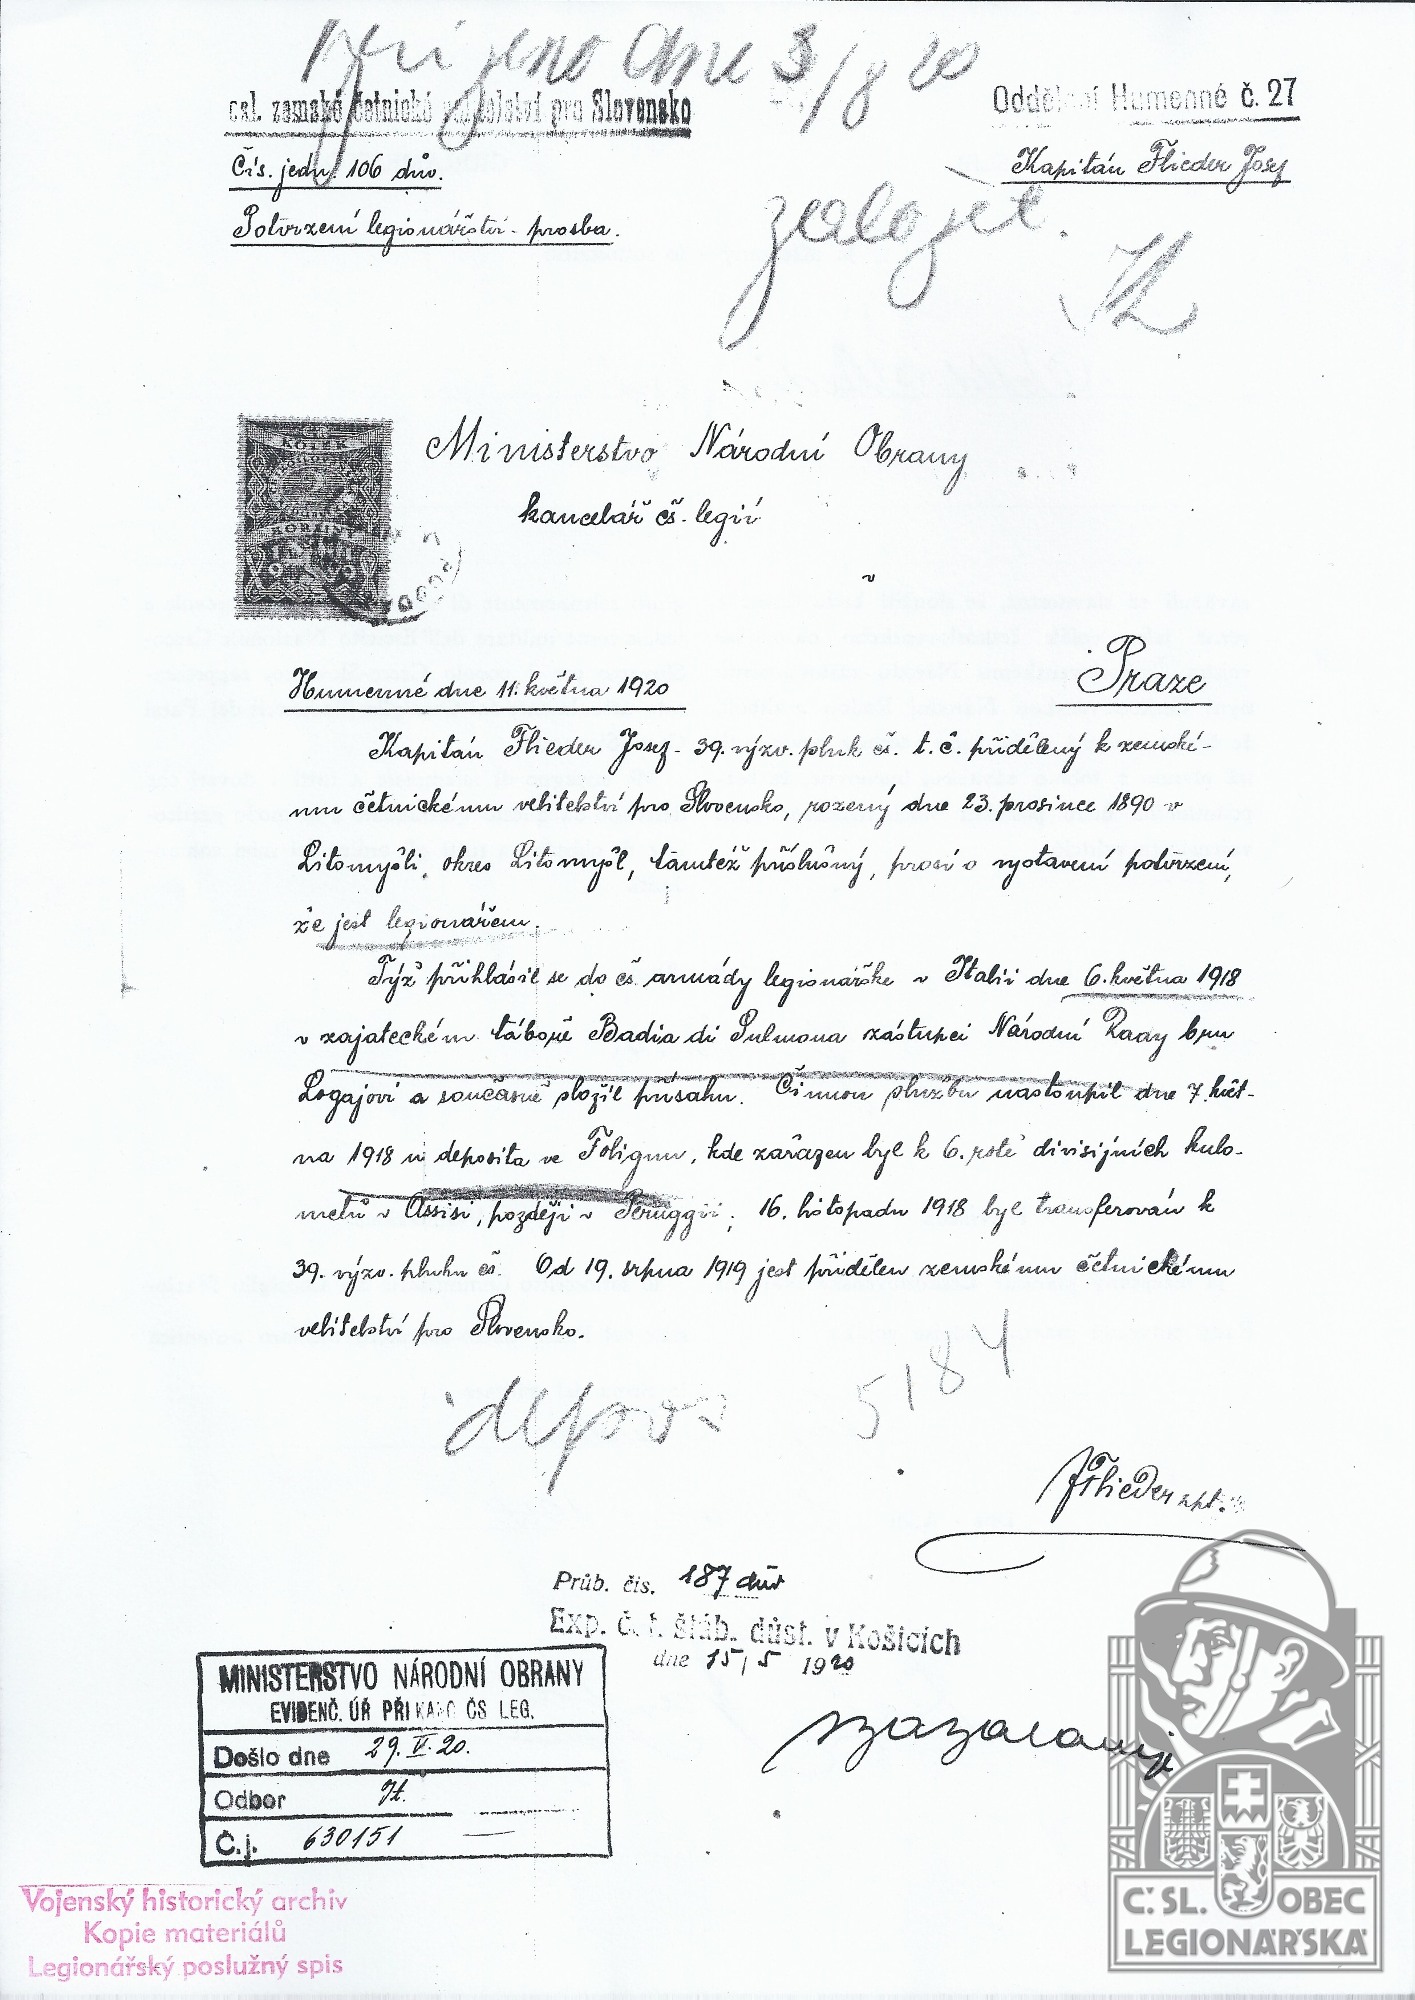 Přijeno dne 3/8 20
čsl. zemské četnické velitelství pro Slovensko
Oddělení Humenné č. 27
Čís. jedn. 106 dův.
Kapitán Flieder Josef
Potvrzení legionářství - prosba.
založit.
Ministerstvo Národní Obrany
kancelář čs. legií
v
Praze
Humenné dne 11. května 1920
Kapitán Flieder Josef - 39. výzv. pluk čs. t. č. přidělený k zemské-
mu četnickému velitelství pro Slovensko, rozený dne 23. prosince 1890 v
Litomyšli, okres Litomyšl, tamtéž příslušný, prosí o vystavení potvrzení,
že jest legionářem.
Týž přihlásil se do čs. armády legionářské v Italii dne 6. května 1918
v zajateckém táboře Badia di Sulmona zástupci Národní Rady bru
Logajovi a současně složil přísahu. Činnou službu nastoupil dne 7. květ-
na 1918 u deposita ve Folignu, kde zařazen byl k 6. rotě divisijních kulo-
metů v Assisi, později v Peruggii, 16. listopadu 1918 byl transferován k
39. výzv. pluku čs. Od 19. srpna 1919 jest přidělen zemskému četnickému
velitelství pro Slovensko.
5184
Flieder kpt.
Průb. čís. 187 dův
Exp. č. t. štáb. důst. v Košicích
dne 15/5 1920
MINISTERSTVO NÁRODNÍ OBRANY
EVIDENČ. ÚŘ PŘI KANC ČS LEG.
Došlo dne 29. V. 20.
Odbor It.
Č.j. 630151
Vojenský historický archiv
Kopie materiálů
Legionářský poslužný spis
Č.SL. OBEC
LEGIONÁŘSKÁ